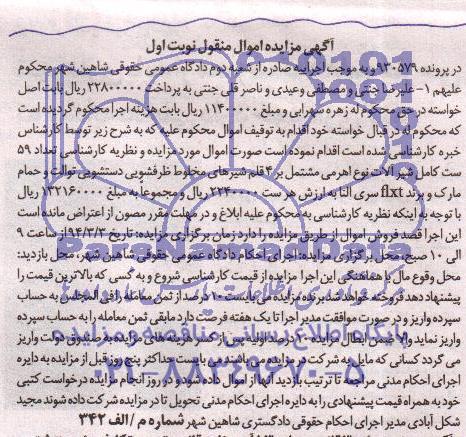 آگهی مزایده اموال منقول نوبت اول
در پرونده ۹۳۰۵۷۹ و به موجب اجراییه صادره از شعبه دوم دادگاه عمومی حقوقی شاهین شهر محکوم
علیهم ۱- علیرضا جنتی و مصطفی وعیدی و ناصر قلی جنتی به پرداخت ۲۲۸۰۰۰۰۰۰ ریال بابت اصل
خواسته در حق محکوم له زهره سهرابی و مبلغ ۱۱۴۰۰۰۰۰ ریال بابت هزینه اجرا محکوم گردیده است
که محکوم له در قبال خواسته خود اقدام به توقیف اموال محکوم علیه که به شرح زیر توسط کارشناس
خبره کارشناسی شده است اقدام نموده است صورت اموال مورد مزایده و نظریه کارشناسی تعداد ۵۹
ست کامل شیر آلات نوع اهرمی مشتمل بر ۴ قلم شیرهای مخلوط ظرفشویی دستشویی توالت و حمام
مارک و برند flxt سری النا به ارزش هر ست ۲۲۴۰۰۰۰ ریال و مجموعا به مبلغ ۱۳۲۱۶۰۰۰۰ ریال
با توجه به اینکه نظریه کارشناسی به محکوم علیه ابلاغ و در مهلت مقرر مصون از اعتراض مانده است
این اجرا قصد فروش اموال از طریق مزایده را دارد زمان برگزاری مزایده: تاریخ ۹۴/۳/۳ از ساعت ۹
الی ۱۰ صبح، محل برگزاری مزایده: اجرای احکام دادگاه عمومی حقوقی شاهین شهر، محل بازدید:
محل وقوع مال با هماهنگی این اجرا مزایده از قیمت کارشناسی شروع و به کسی که بالاترین قیمت را
پیشنهاد دهد فروخته خواهد شد برنده مزایده می بایست ۱۰ درصد از ثمن معامله را فی المجلس به حساب
سپرده واریز و در صورت موافقت مدیر اجرا تا یک هفته فرصت دارد مابقی ثمن معامله را به حساب سپرده
واریز نماید والا ضمن ابطال مزایده ۱۰ درصد اولیه پس از کسر هزینه های مزایده به صندوق دولت واریز
می گردد کسانی که مایل به شرکت در مزایده می باشند می بایست حداکثر پنج روز قبل از مزایده به دایره
اجرای احکام مدنی مراجعه تا ترتیب بازدید آنها از اموال داده شود و در روز انجام مزایده درخواست کتبی
خود به همراه قیمت پیشنهادی را به دایره اجرای احکام مدنی تحویل تا در مزایده شرکت داده شوند مجید
شکل آبادی مدیر اجرای احکام حقوقی دادگستری شاهین شهر شماره م / الف ۳۴۲
ParsNamad Data
پایگاه اطلاع رسانی مناقصه و مزایده
۰۲۱-۸۸۳۴۹۶۷۰-۵